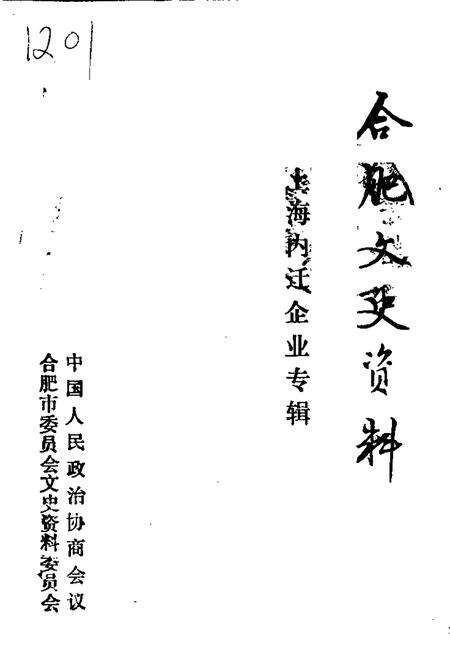 1201
合肥文史资料
上海内迁企业专辑
中国人民政治协商会议
合肥市委员会文史资料委员会